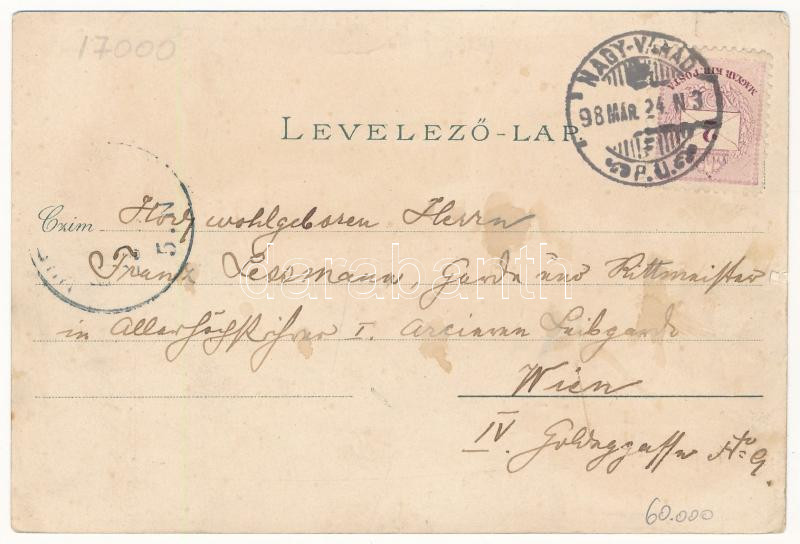 17000
NAGY-VÁRAD
98 MÁR. 24 N 3
P.U.
MAGYAR KIR. POSTA
2
LEVELEZŐ-LAP
5.N
Czim Hochwohlgeboren Herrn
Franz Lessmann, Garde und Rittmeister
in Allerhöchst ihrer I. Arcieren Leibgarde
Wien
IV. Goldeggasse No 9
darabanth
60.000